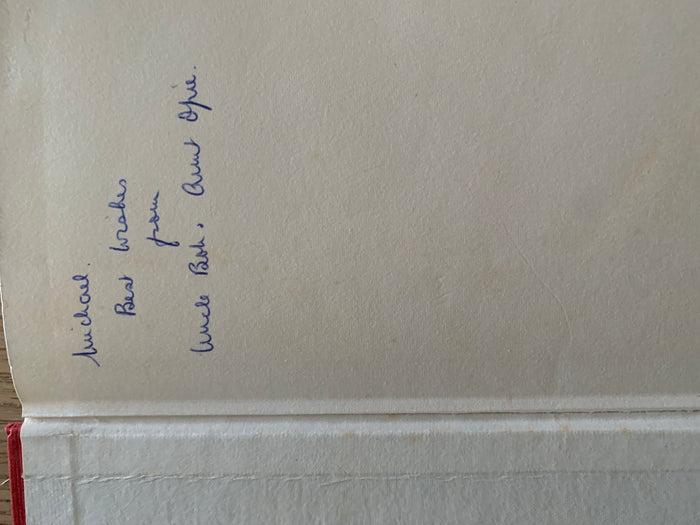 Michael.
Best Wishes
from
Uncle Bob, Aunt Opie.